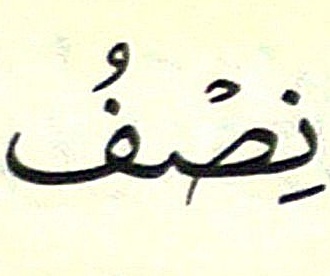 نِصْفُ